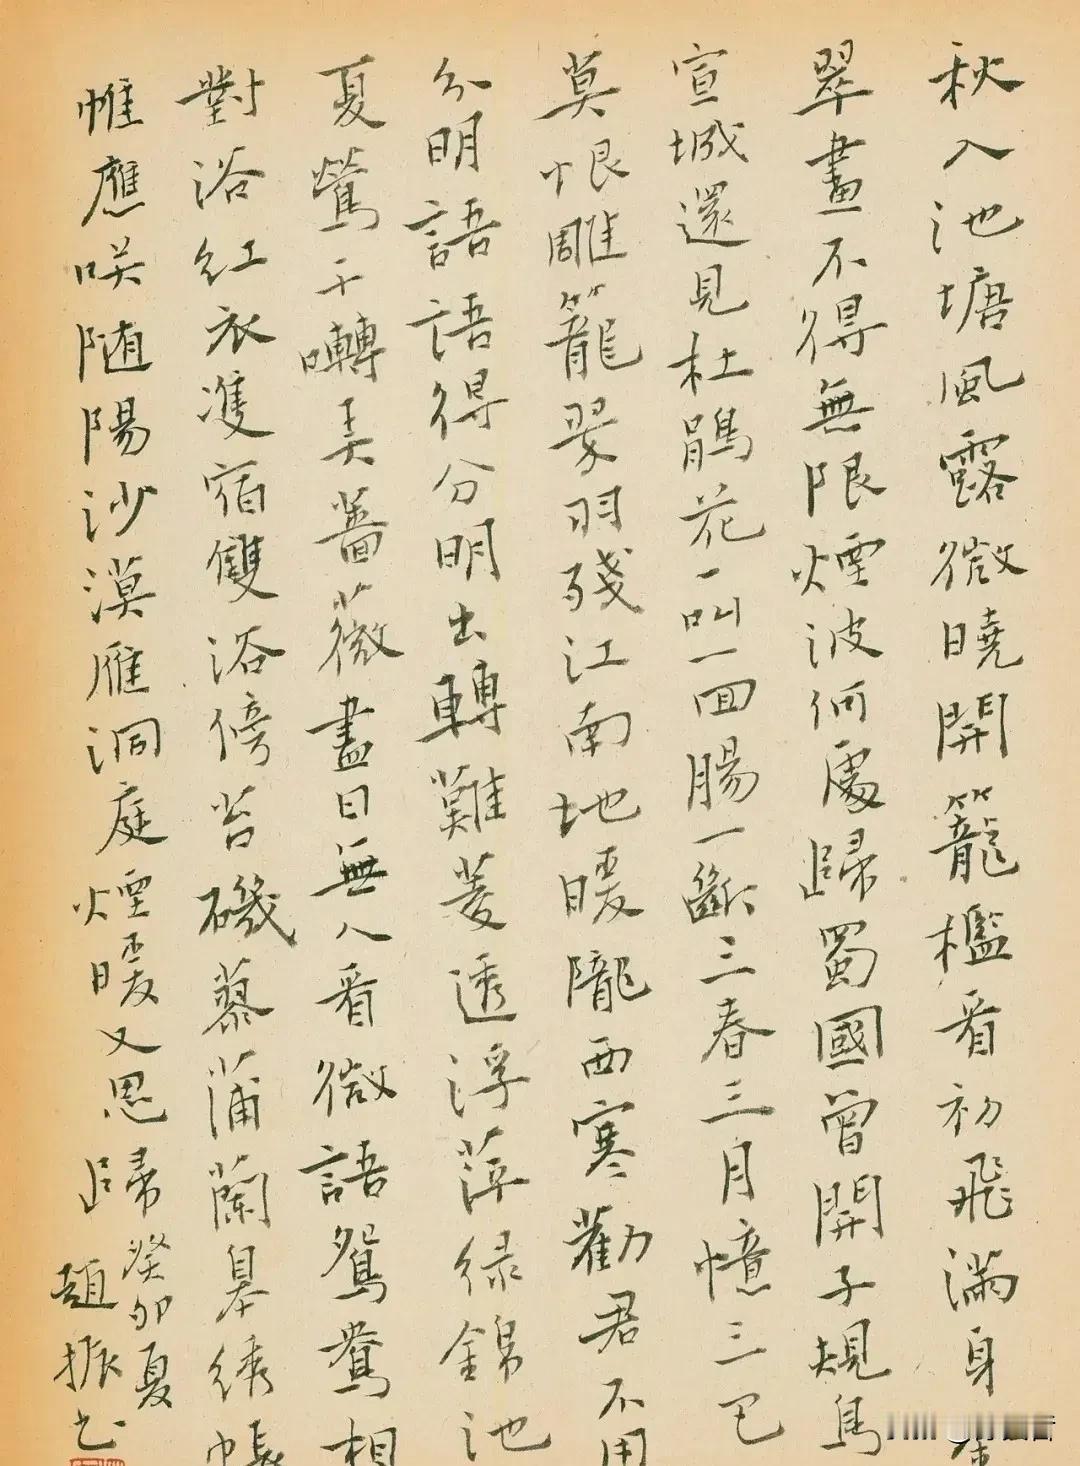 秋入池塘風露微曉開籠檻看初飛滿身
翠畫不得無限煙波何處歸蜀國曾聞子規鳥
宣城還見杜鵑花一叫一回腸一斷三春三月憶三巴
莫恨雕籠翠羽殘江南地暖隴西寒勸君不用
分明語語得分明出轉難菱透浮萍绿錦池
夏鶯千囀弄薔薇盡日無人看微語鴛鴦相
對浴红衣雙宿雙浴傍苔磯蓼蒲蘭皋绣帳
帷應咲随陽沙漠雁洞庭煙暖又思歸
癸卯夏
趙振书